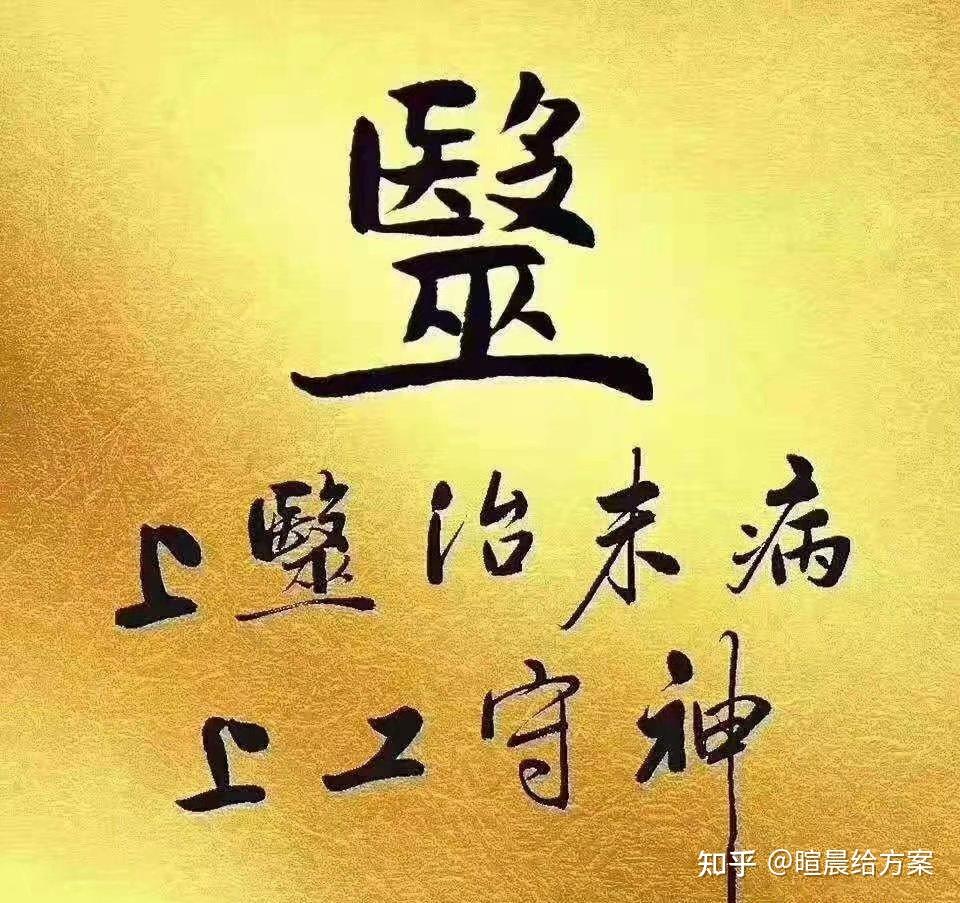 毉
上毉治未病
上工守神
知乎 @暄晨给方案